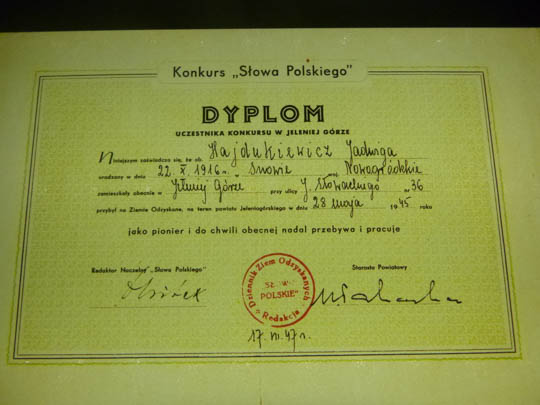 Konkurs „Słowa Polskiego"
DYPLOM
UCZESTNIKA KONKURSU W JELENIEJ GÓRZE
Niniejszym zaświadcza się, że ob. Hajdukiewicz Jadwiga
urodzony w dniu 22. X. 1916 r. Snowie woj. Nowogródzkie
zamieszkały obecnie w Jeleniej Górze przy ulicy J. Słowackiego nr 36
przybył na Ziemie Odzyskane, na teren powiatu Jeleniogórskiego w dniu 28 maja 1945 roku
jako pionier i do chwili obecnej nadal przebywa i pracuje
Redaktor Naczelny „Słowa Polskiego"
Starosta Powiatowy
Dziennik Ziem Odzyskanych
"SŁOWO
POLSKIE"
Redakcja
17. VI. 47 r.